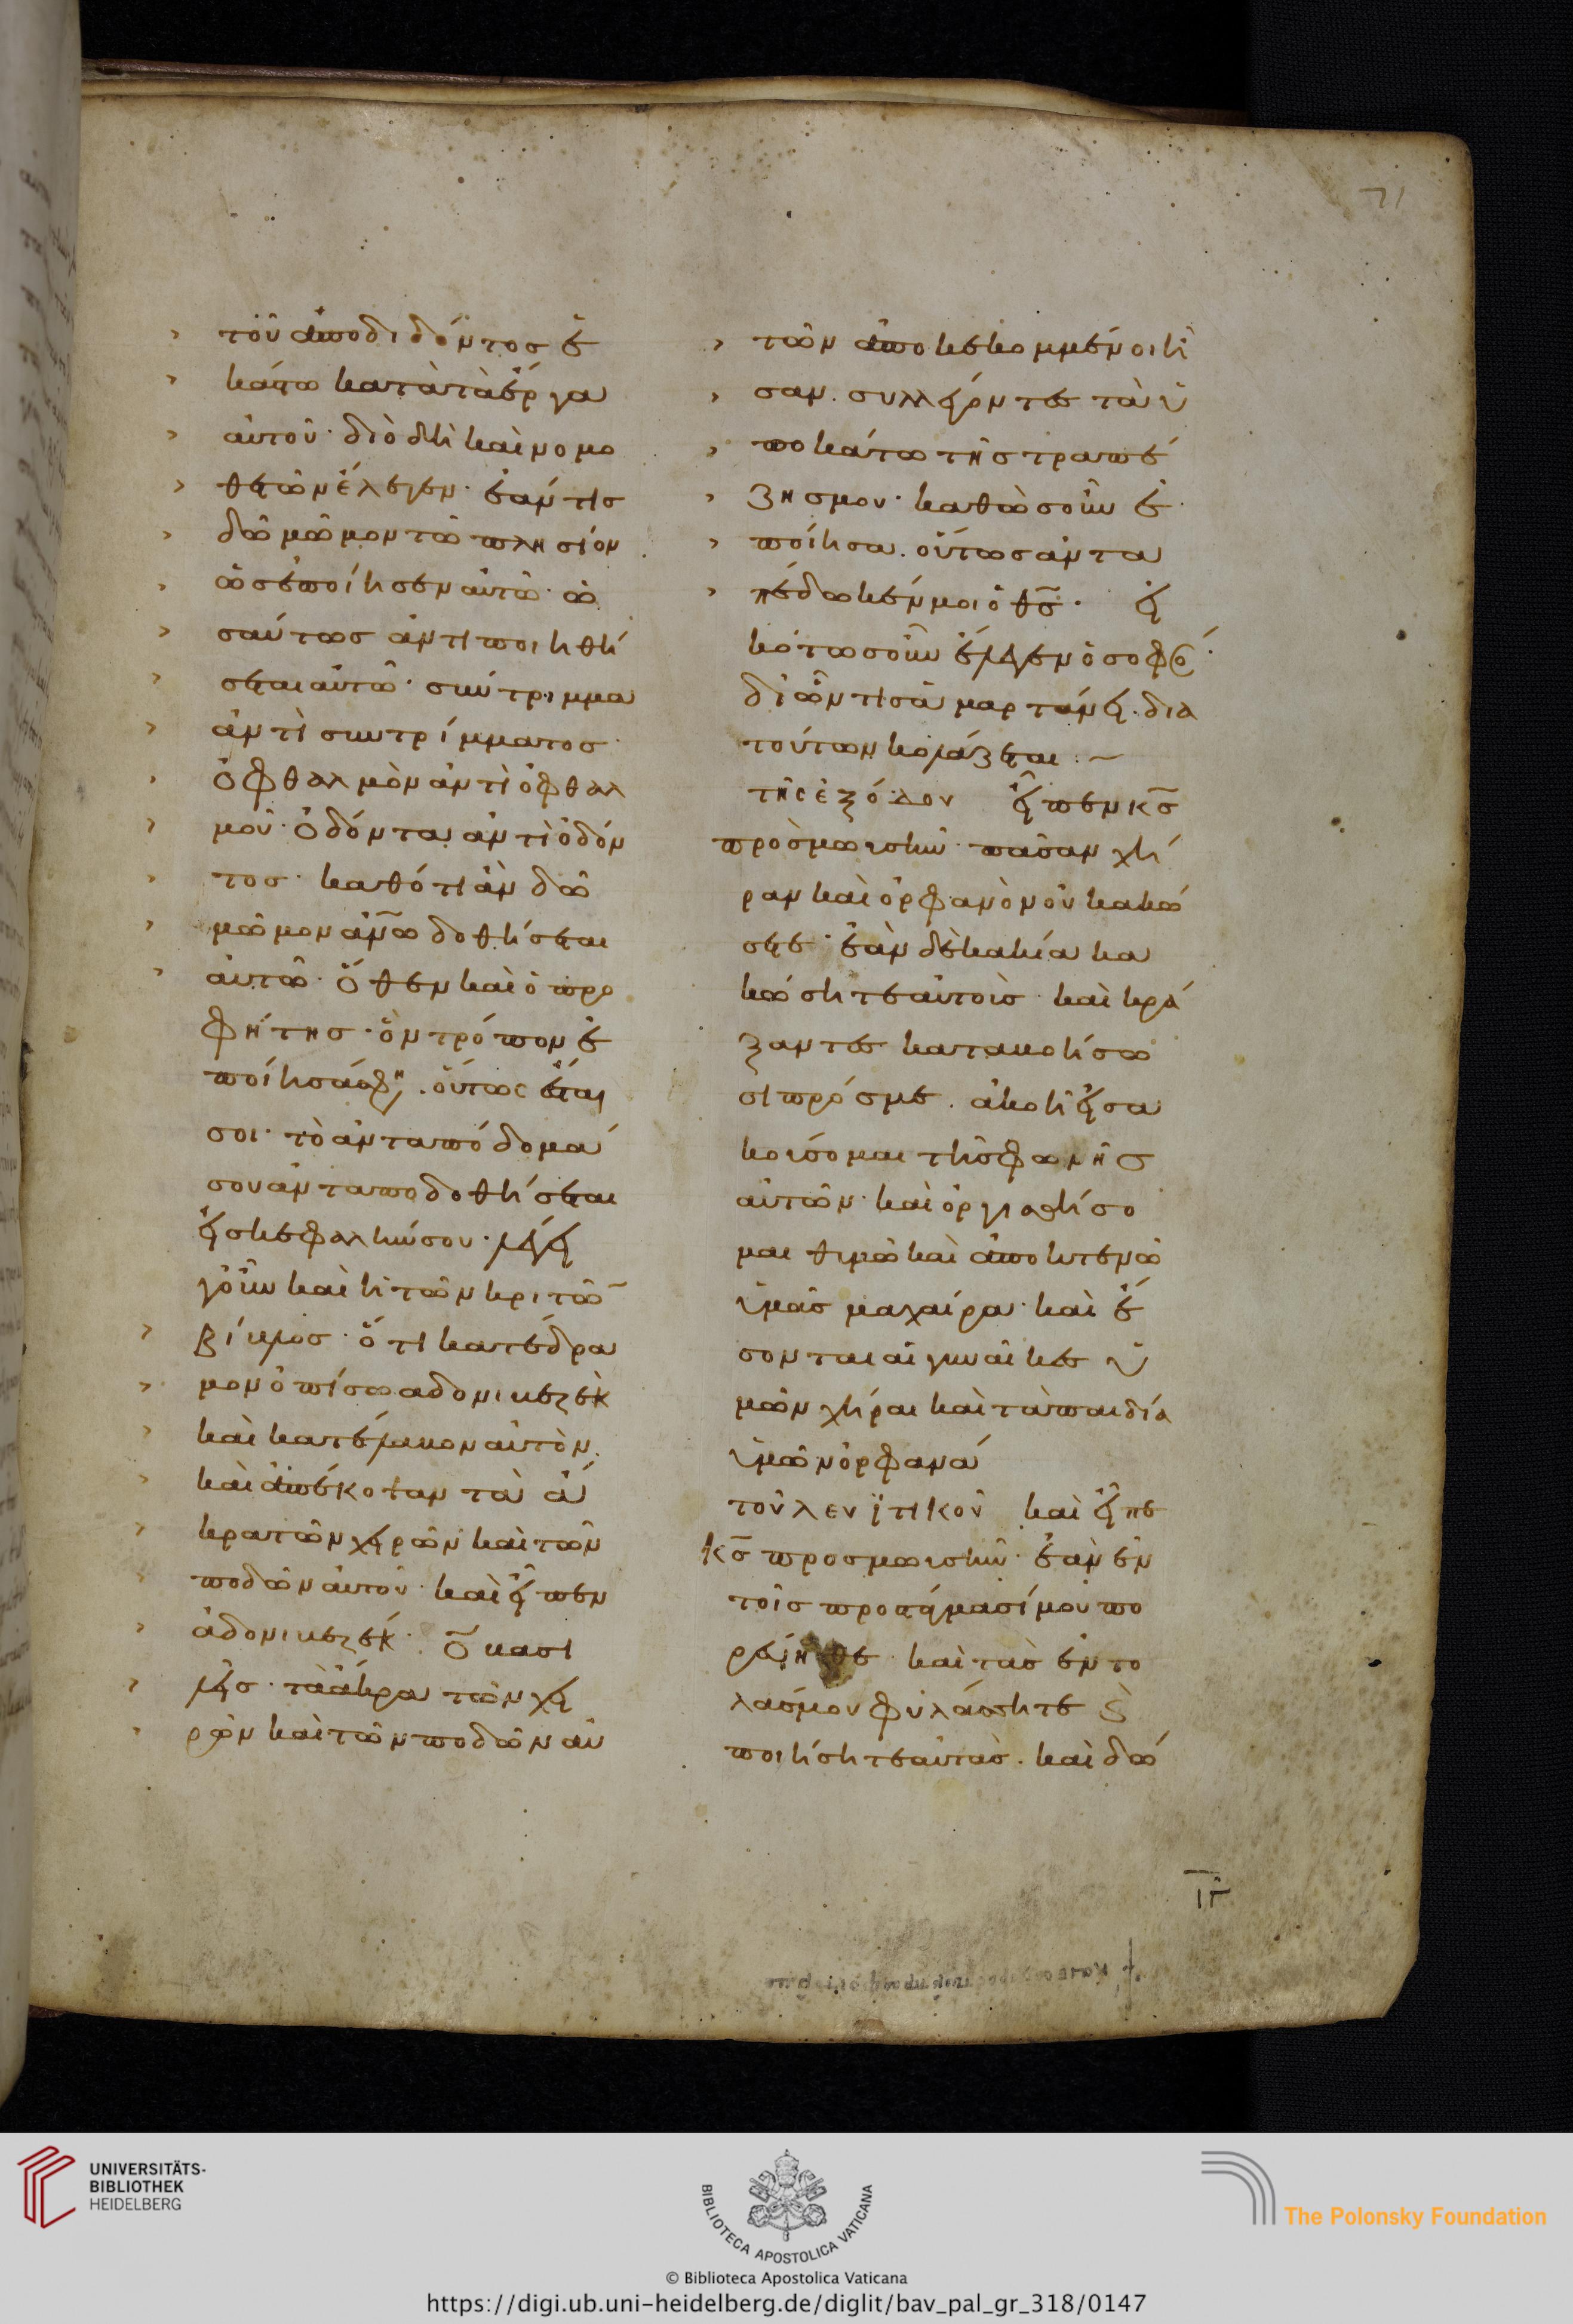 71
τοῦ ἀποδιδόντος ἑ
κάστω κατὰ τὰ ἔργα
αὐτοῦ· διὸ δὴ καὶ νομο
θετῶν ἔλεγεν· ἐάν τις
δῶ μῶμον τῶ πλησίον
ὡς ἐποίησεν αὐτῶ· ὡ
σαύτως ἀντιποιηθή
σεται αὐτῶ· σύντριμμα
ἀντὶ συντρίμματος·
ὀφθαλμὸν ἀντὶ ὀφθαλ
μοῦ· ὀδόντα ἀντὶ ὀδόν
τος· καθότι ἂν δῶ
μῶμον ἀν̅ω δοθήσεται
αὐτῶ· ὅθεν καὶ ὁ προ
φήτης· ὃν τρόπον ἐ
ποίησας φη. οὕτως ἔσται
σοι· τὸ ἀνταπόδομά
σου ἀνταποδοθήσεται
εἰς κεφαλήν σου· λέγει
γοῦν καὶ ἡ τῶν κριτῶ̅
βίβλος· ὅτι κατέδρα
μον ὀπίσω αδονιβεζὲκ
καὶ κατέλαβον αὐτὸν.
καὶ ἀπέκοψαν τὰ ἄ
κρα τῶν χειρῶν καὶ τῶν
ποδῶν αὐτοῦ· καὶ εἶπεν
ἀδονιβεζέκ· ο̅ βασι
λεῖς· τὰ ἄκρα τῶν χει
ρῶν καὶ τῶν ποδῶν αὐ
τῶν ἀποκεκομμένοι ἦ
σαν. συλλέγοντες τὰ ὑ
ποκάτω τῆς τραπέ
ζης μου· καθὼς οὖν ἐ
ποίησα. οὕτως ἀντα
πέδωκέν μοι ὁ θ̅ς̅· εἰ
κότως οὖν ἔλεγεν ὁ σοφο·
δι' ὧν τις ἁμαρτάνει. δια
τούτων κολάζεται :~
τῆς ἐξόδου εἶπεν κ̅ς̅
πρὸς μωυσῆν· πᾶσαν χή
ραν καὶ ὀρφανὸν οὐ κακώ
σετε· ἐὰν δὲ κακία κα
κώσητε αὐτοὺς· καὶ κρά
ξαντες καταβοήσω
σι πρός με. ἀκοῆ εἰσα
κούσομαι τῆς φωνῆς
αὐτῶν· καὶ ὀργισθήσο
μαι θυμῶ καὶ ἀποκτενῶ
ὑμᾶς μαχαίρα· καὶ ἔ
σονται αἱ γυναῖκες ὑ
μῶν χῆραι καὶ τὰ παιδία
ὑμῶν ὀρφανά
τοῦ λευϊτικοῦ καὶ εἶπε
κ̅ς̅ προς μωυσῆν· ἐὰν ἐν
τοῖς προστάγμασί μου πο
ρεύησθε καὶ τὰς ἐντο
λάς μου φυλάσσητε ϛ̀
ποιήσητε αὐτὰς. καὶ δώ
ι̅γ̅
UNIVERSITÄTS-
BIBLIOTHEK
HEIDELBERG
BIBLIOTECA APOSTOLICA VATICANA
The Polonsky Foundation
© Biblioteca Apostolica Vaticana
https://digi.ub.uni-heidelberg.de/diglit/bav_pal_gr_318/0147